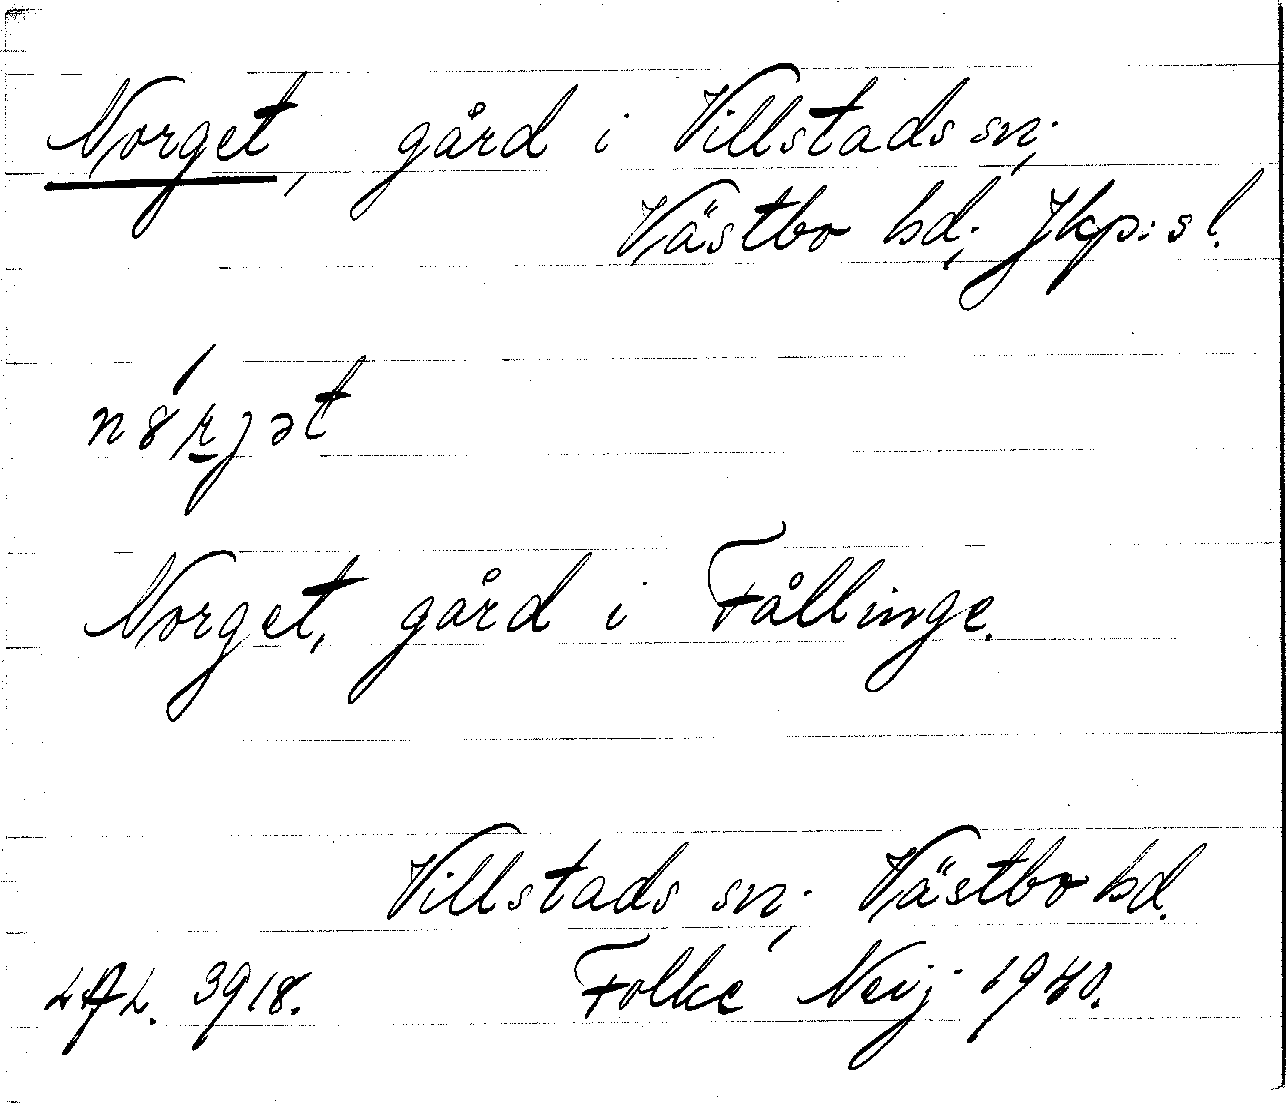 Norget, gård i Villstads sn;
Västbo hd; Jkp:s l.
nȣ́r̲jət
Norget, gård i Fållinge.
Villstads sn; Västbo hd.
LAL. 3918. Folke Neij 1940.